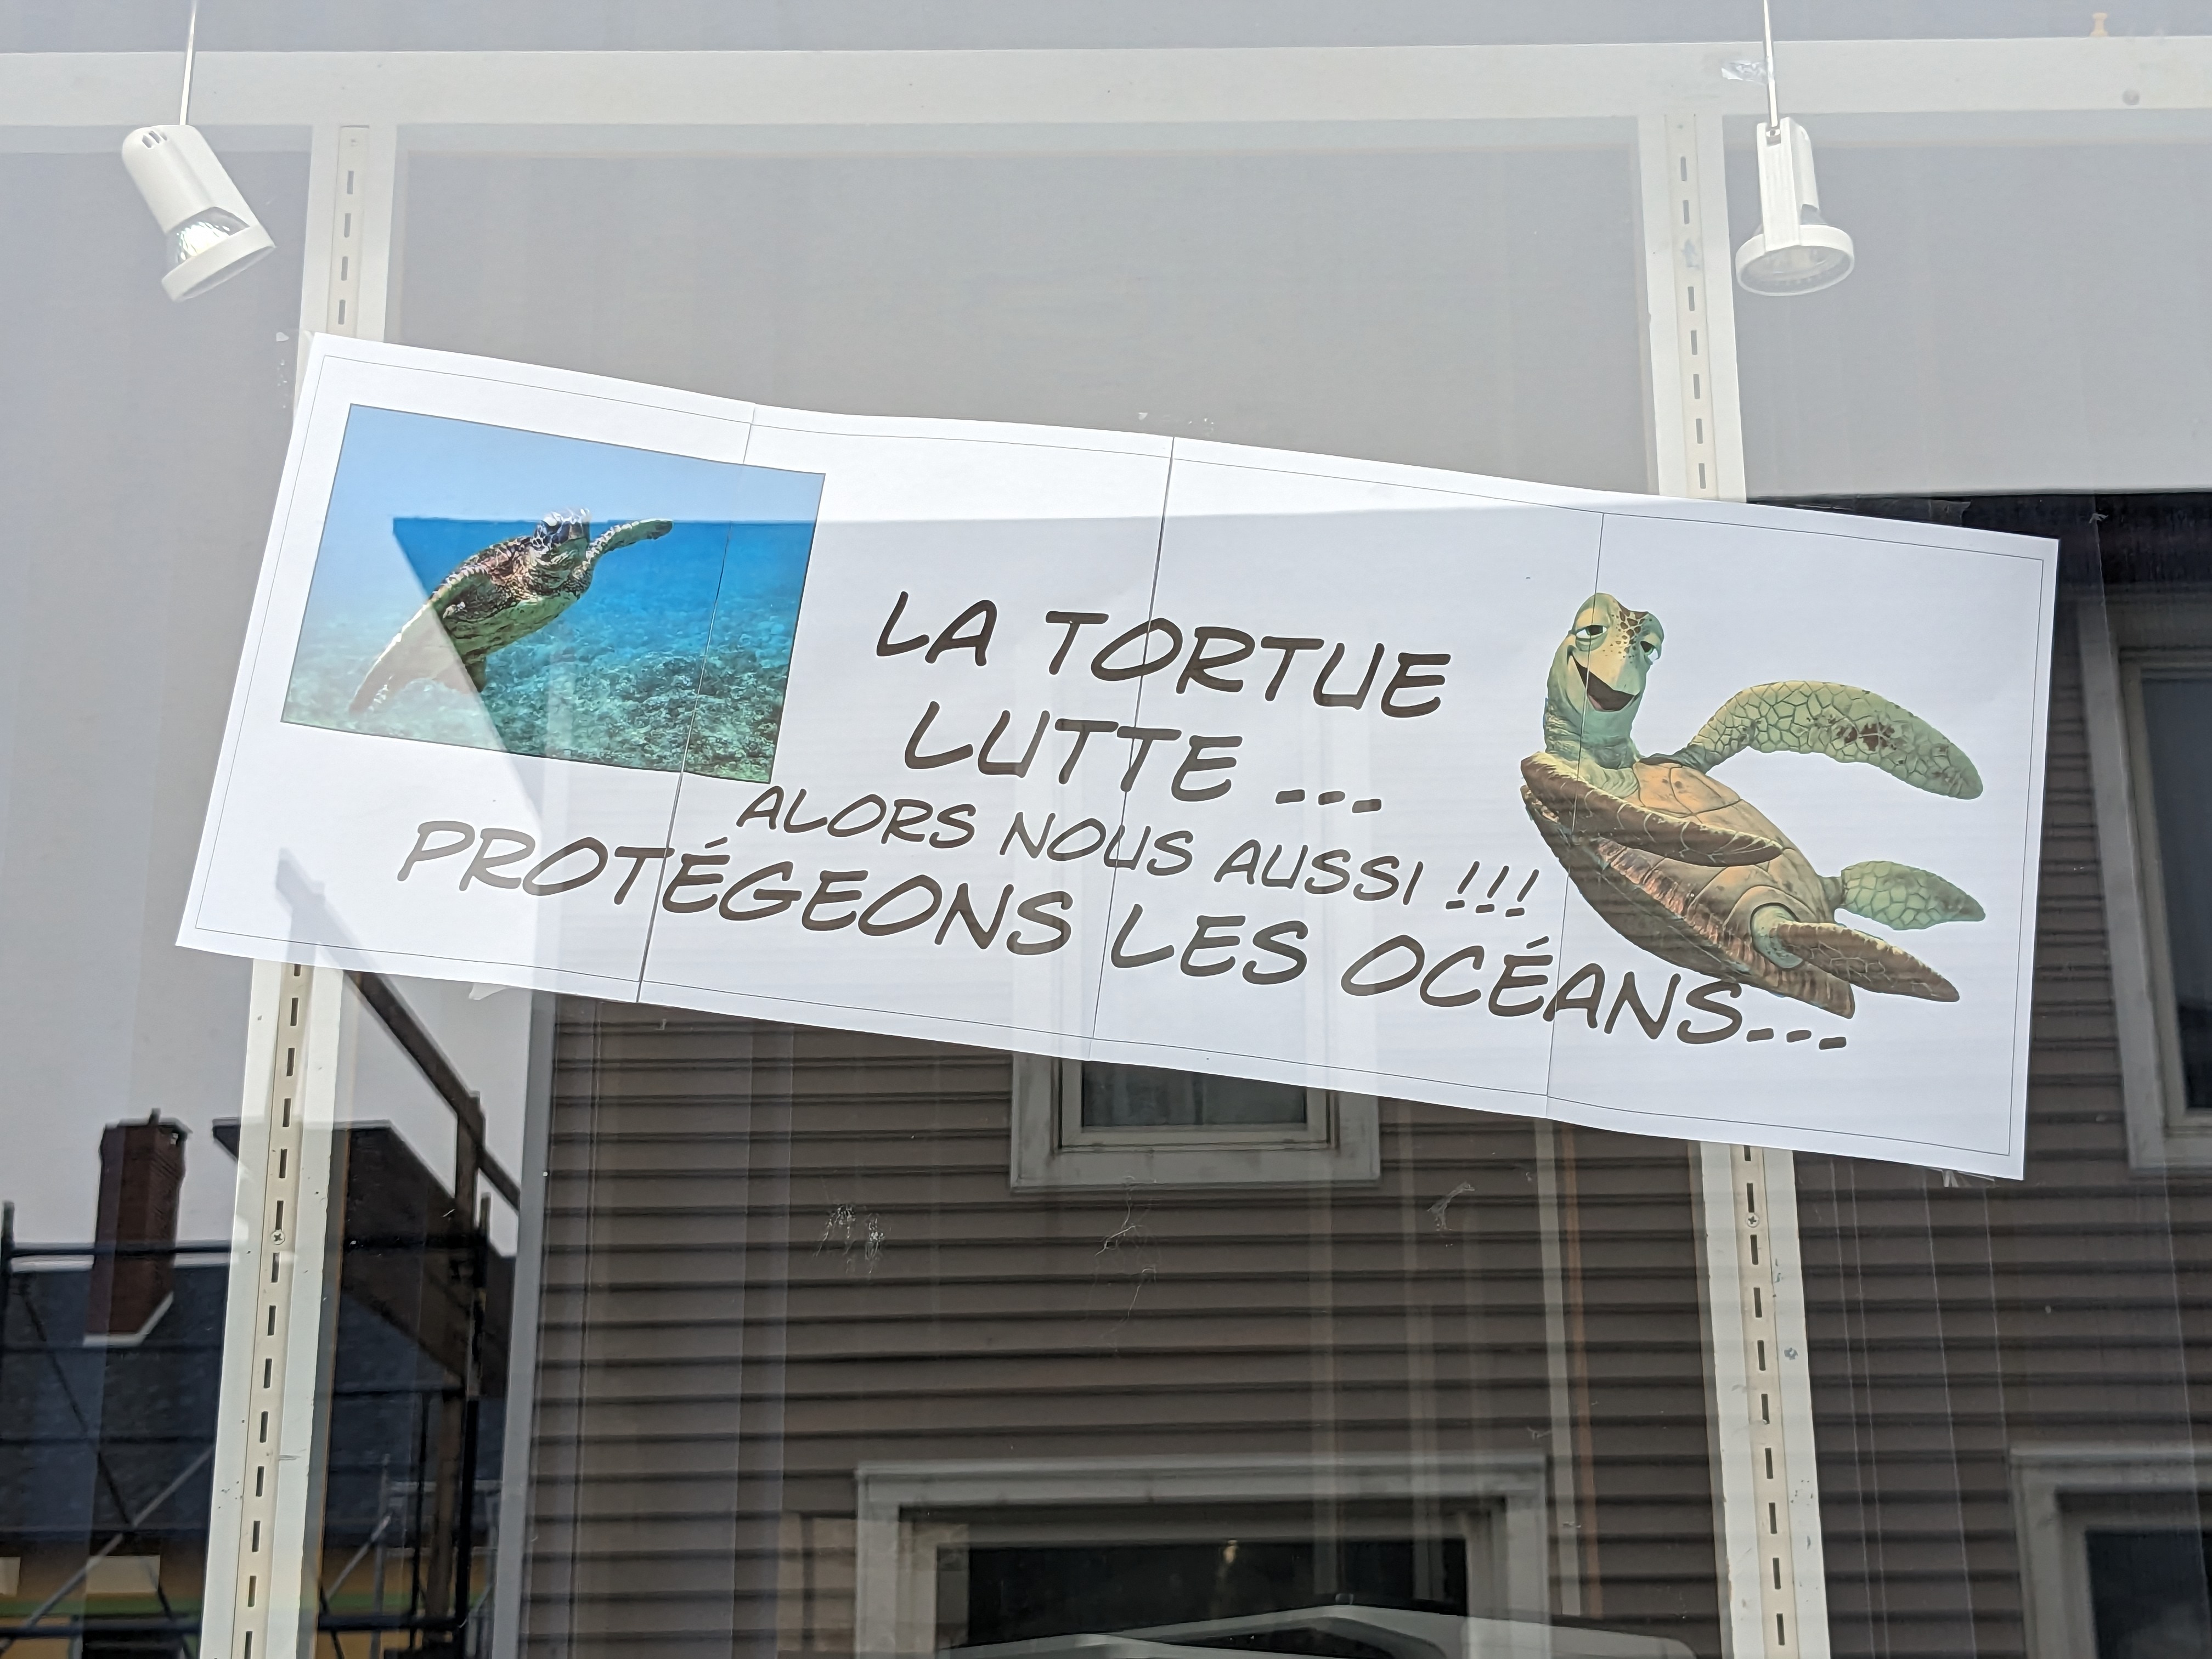 LA TORTUE
LUTTE ...
ALORS NOUS AUSSI !!!
PROTÉGEONS LES OCÉANS...